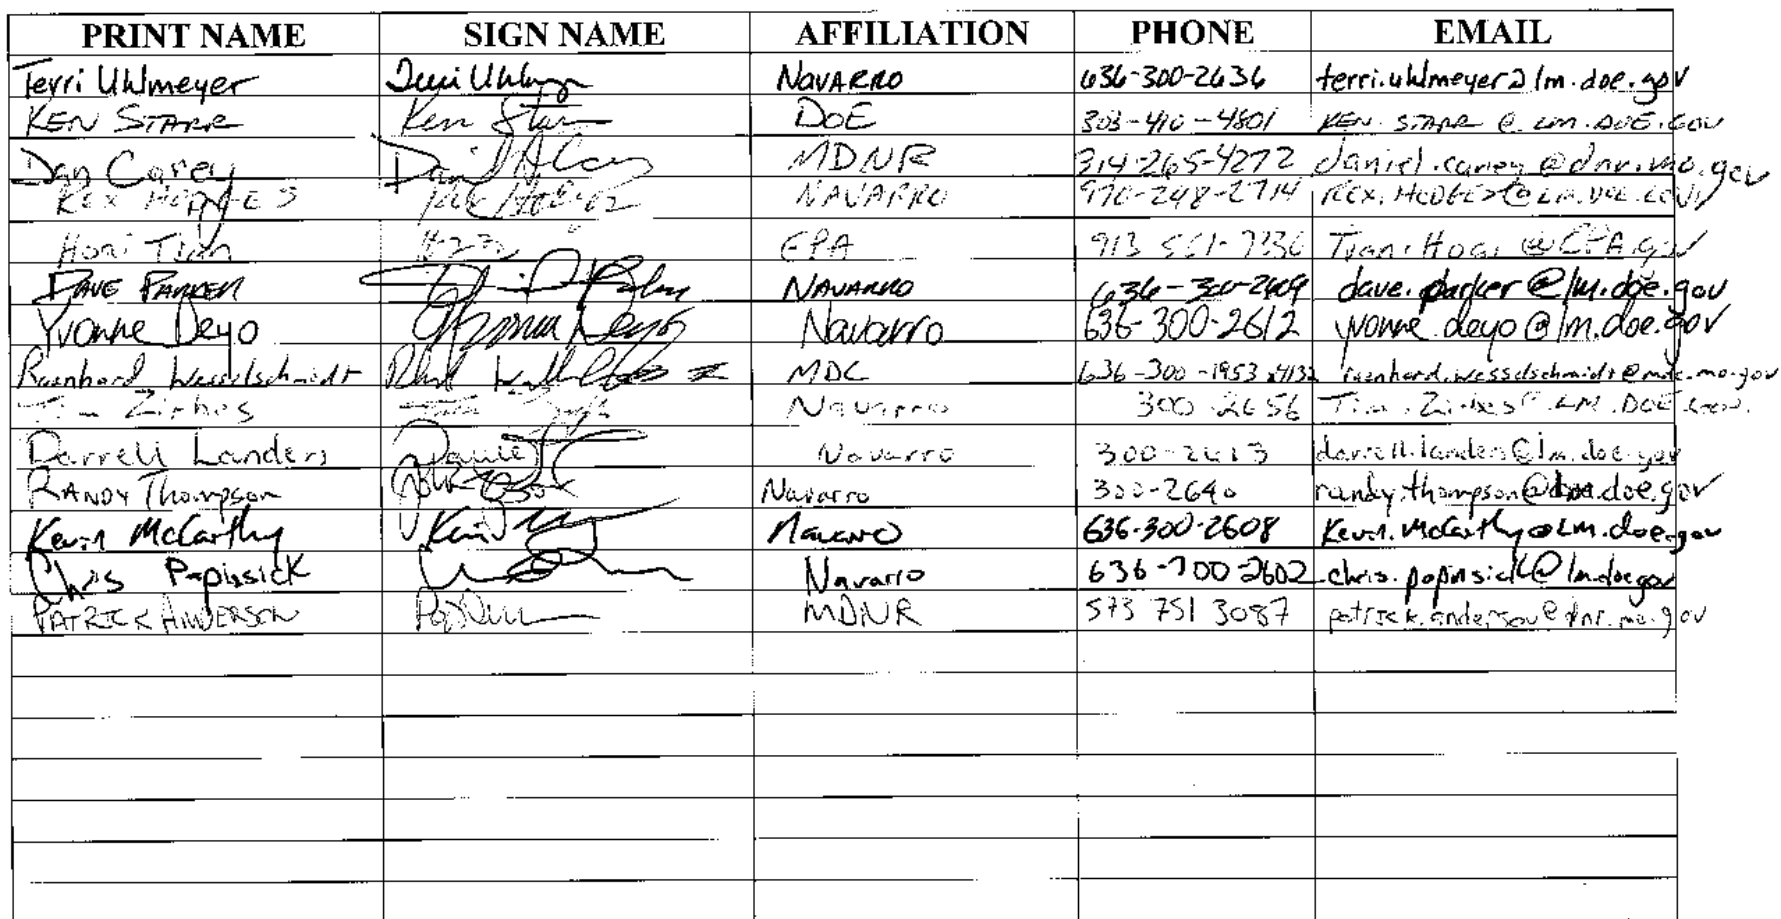 PRINT NAME SIGN NAME AFFILIATION PHONE EMAIL
Terri Uhlmeyer Terri Uhlmeyer NAVARRO 636-300-2636 terri.uhlmeyer@lm.doe.gov
KEN STARR Ken Starr DOE 303-410-4801 KEN.STARR@LM.DOE.GOV
Dan Carey MDNR 314-265-4272 daniel.carey@dnr.mo.gov
REX HODGES NAVARRO 970-248-2714 REX.HODGES@LM.DOE.GOV
Hoai Tran EPA Tran.Hoai@EPA.gov
DAVE PARKER NAVARRO dave.parker@lm.doe.gov
Yvonne Deyo Yvonne Deyo Navarro 636-300-2612 yvonne.deyo@lm.doe.gov
Raenhard Wesselschmidt MDC 636-300-1953 x4132 raenhard.wesselschmidt@mdc.mo.gov
Navarro 300-2656
Darrell Landers Navarro 300-2613 darrell.landers@lm.doe.gov
RANDY Thompson Navarro 300-2640 randy.thompson@lm.doe.gov
Kevin McCarthy Navarro 636-300-2608 Kevin.McCarthy@LM.doe.gov
Chris Navarro
PATRICK ANDERSON MDNR 573 751 3087 patrick.anderson@dnr.mo.gov